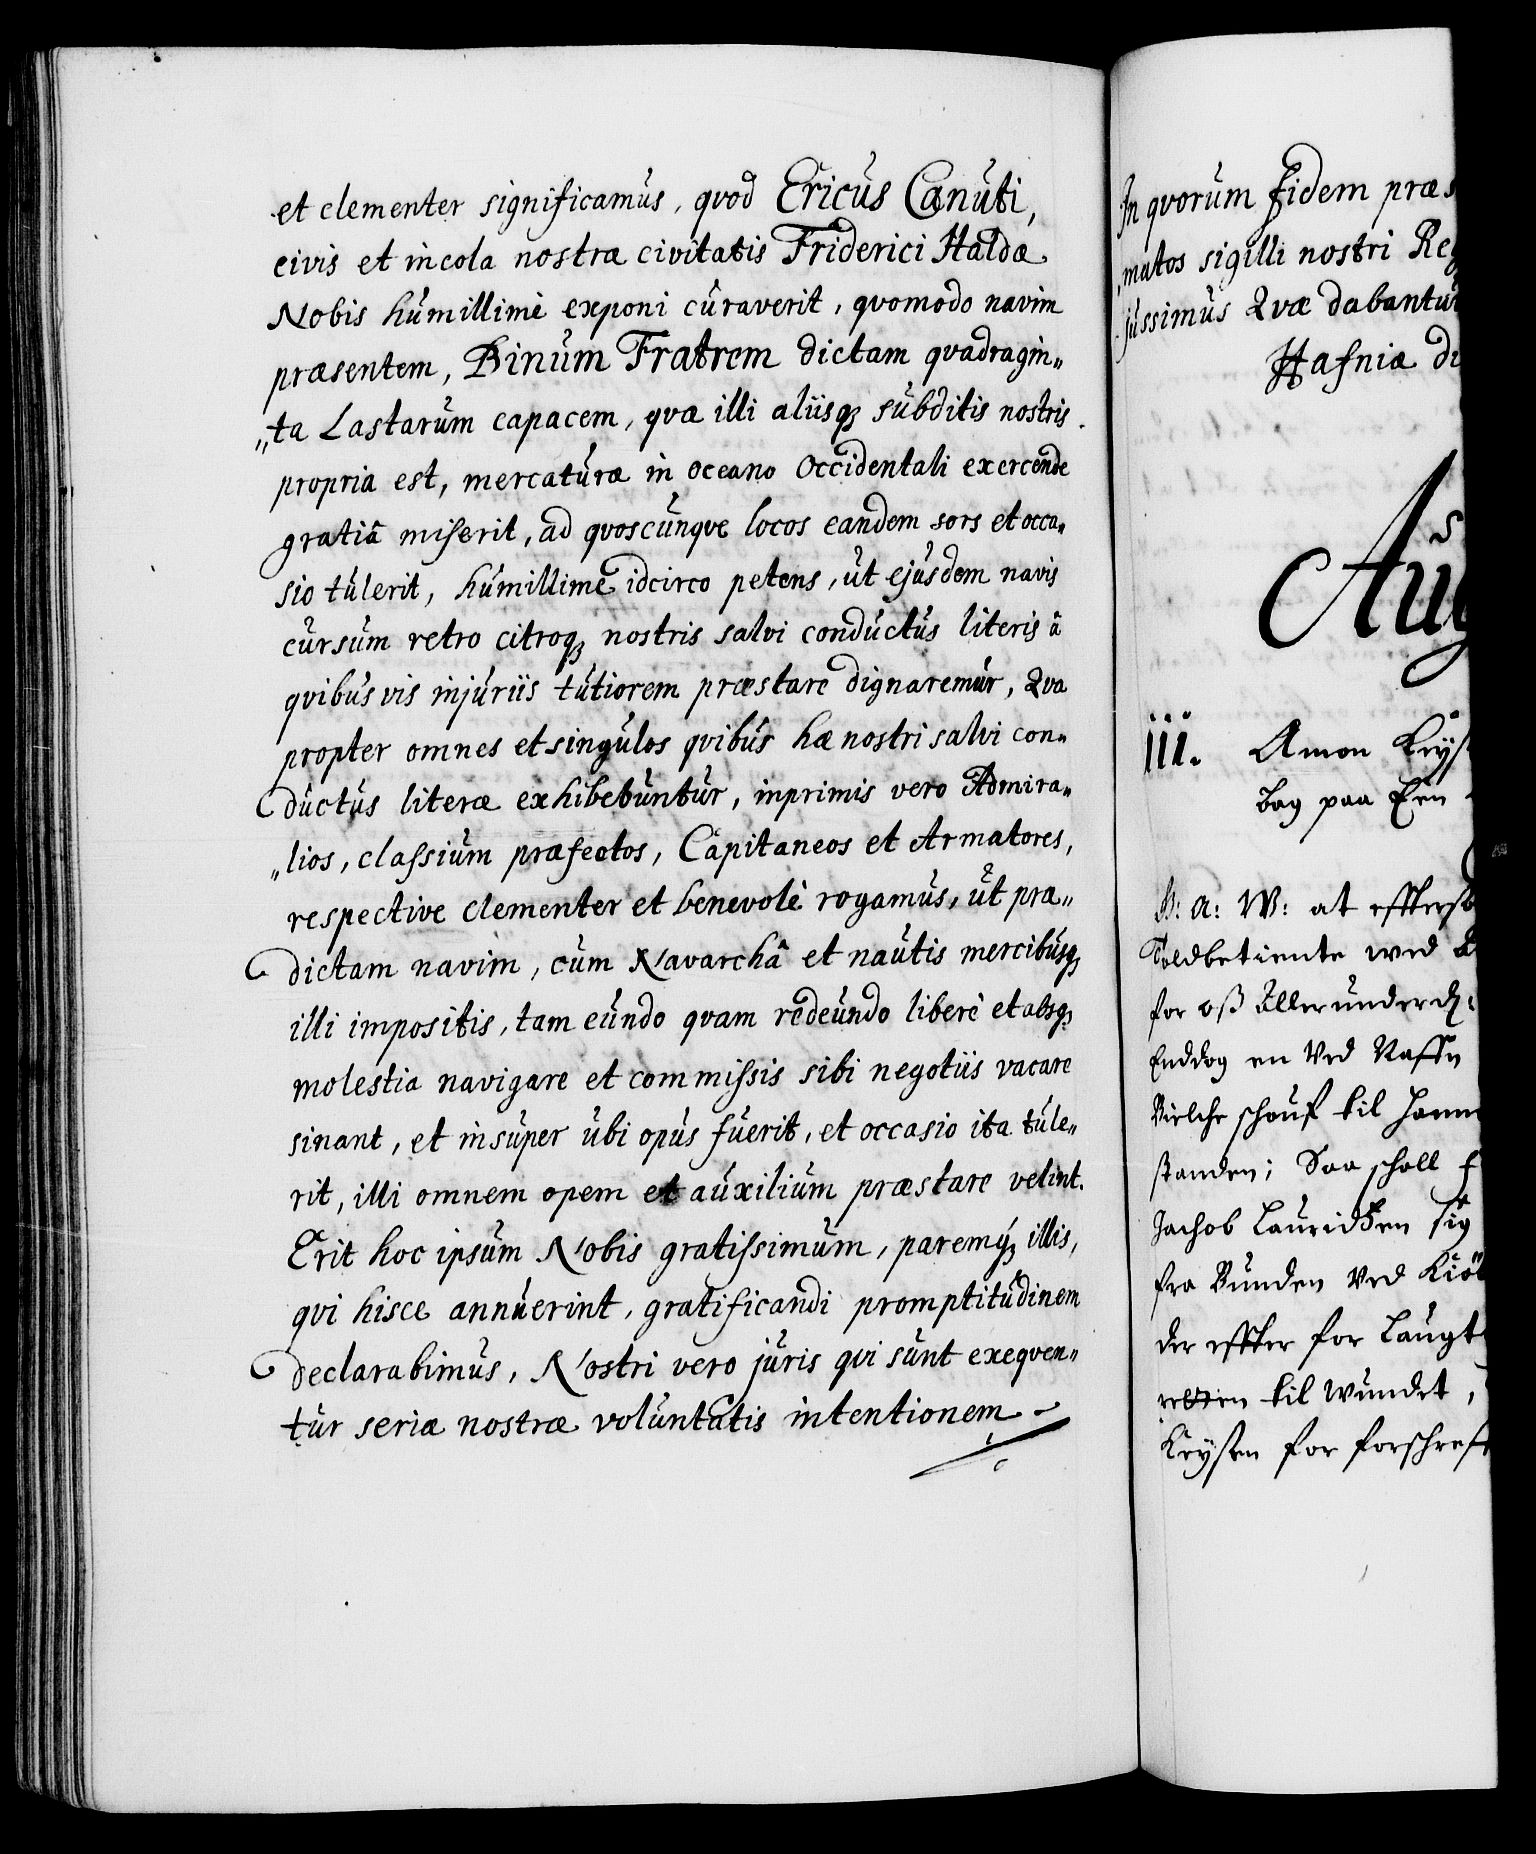 et clementer significamus, qvod Ericus Canuti,
civis et incola nostræ civitatis Friderici Haldæ
Nobis humillimè exponi curaverit, qvomodo navim
præsentem, Binum Fratrem dictam qvadragin„
„ta Lastarum capacem, qvæ illi aliisq; subditis nostris
propria est, mercaturæ in oceano occidentali exercendæ
gratiâ miserit, ad qvoscunqve locos eandem sors et occa„
sio tulerit, humillimè idcirco petens, ut ejusdem navis
cursum retro citroq; nostris salvi conductus literis â
qvibus vis injuriis tutiorem præstare dignaremur, Qva
propter omnes et singulos qvibus hæ nostri salvi con„
ductus literæ exhibebuntur, inprimis vero Admira„
„lios, classium præfectos, Capitaneos et Armatores,
respective clementer et benevolè rogamus, ut præ„
dictam navim, cum Navarchâ et nautis mercibusq;
illi impositis, tam eundo qvam redeundo liberè et absq;
molestia navigare et commissis sibi negotiis vacare
sinant, et insuper ubi opus fuerit, et occasio ita tule„
rit, illi omnem opem et auxilium præstare velint.
Erit hoc ipsum Nobis gratissimum, paremq; illis,
qvi hisce annuerint, gratificandi promptitudinem
declarabimus, Nostri vero juris qvi sunt exeqven„
tur seriæ nostræ voluntatis intentionem
In qvorum fidem præs
matos sigilli nostri Reg
jussimus Qvæ dabantur
Hafniæ di
Aug
iii. Amon Krys
bog paa Een
G: A: W: at effters
Toldbetiente wed
for oß Allerunderd:
Enddog en Ved Naffn
Vielche schouf til hann
standen; Saa schall
Jachob Lauridßen sig
fra Bunden Ved Kiö
der effter for Laugt
retten til wundet,
Krysen for forschreff